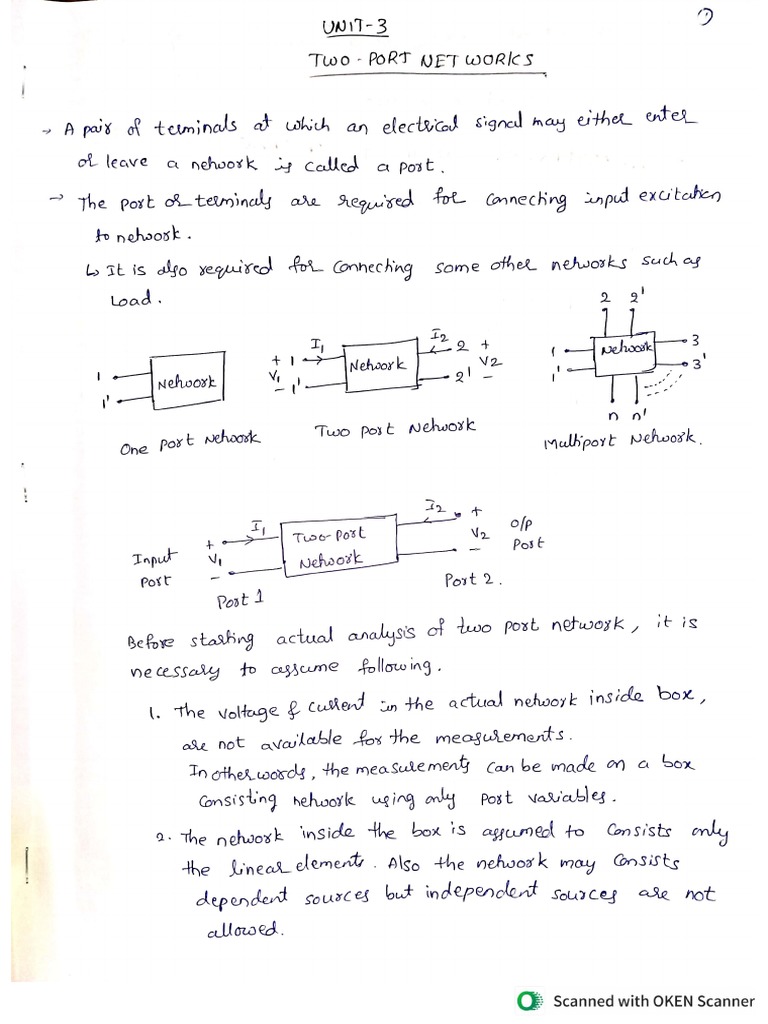 UNIT-3
TWO-PORT NETWORKS
→ A pair of terminals at which an electrical signal may either enter
or leave a network is called a port.
→ The port or terminals are required for connecting input excitation
to network.
↳ It is also required for connecting some other networks such as
Load.
1 1' Network
One Port Network
+ V1 - I1 1 1' Network I2 2 2' + V2 -
Two Port Network
2 2' 1 1' Network 3 3' n n'
Multiport Network.
Input Port + V1 - I1 Two-Port Network I2 + V2 - O/P Port
Port 1 Port 2.
Before starting actual analysis of two port network, it is
necessary to assume following.
1. The voltage & current in the actual network inside box,
are not available for the measurements.
In other words, the measurements can be made on a box
consisting network using only port variables.
2. The network inside the box is assumed to consists only
the linear elements. Also the network may consists
dependent sources but independent sources are not
allowed.
Scanned with OKEN Scanner